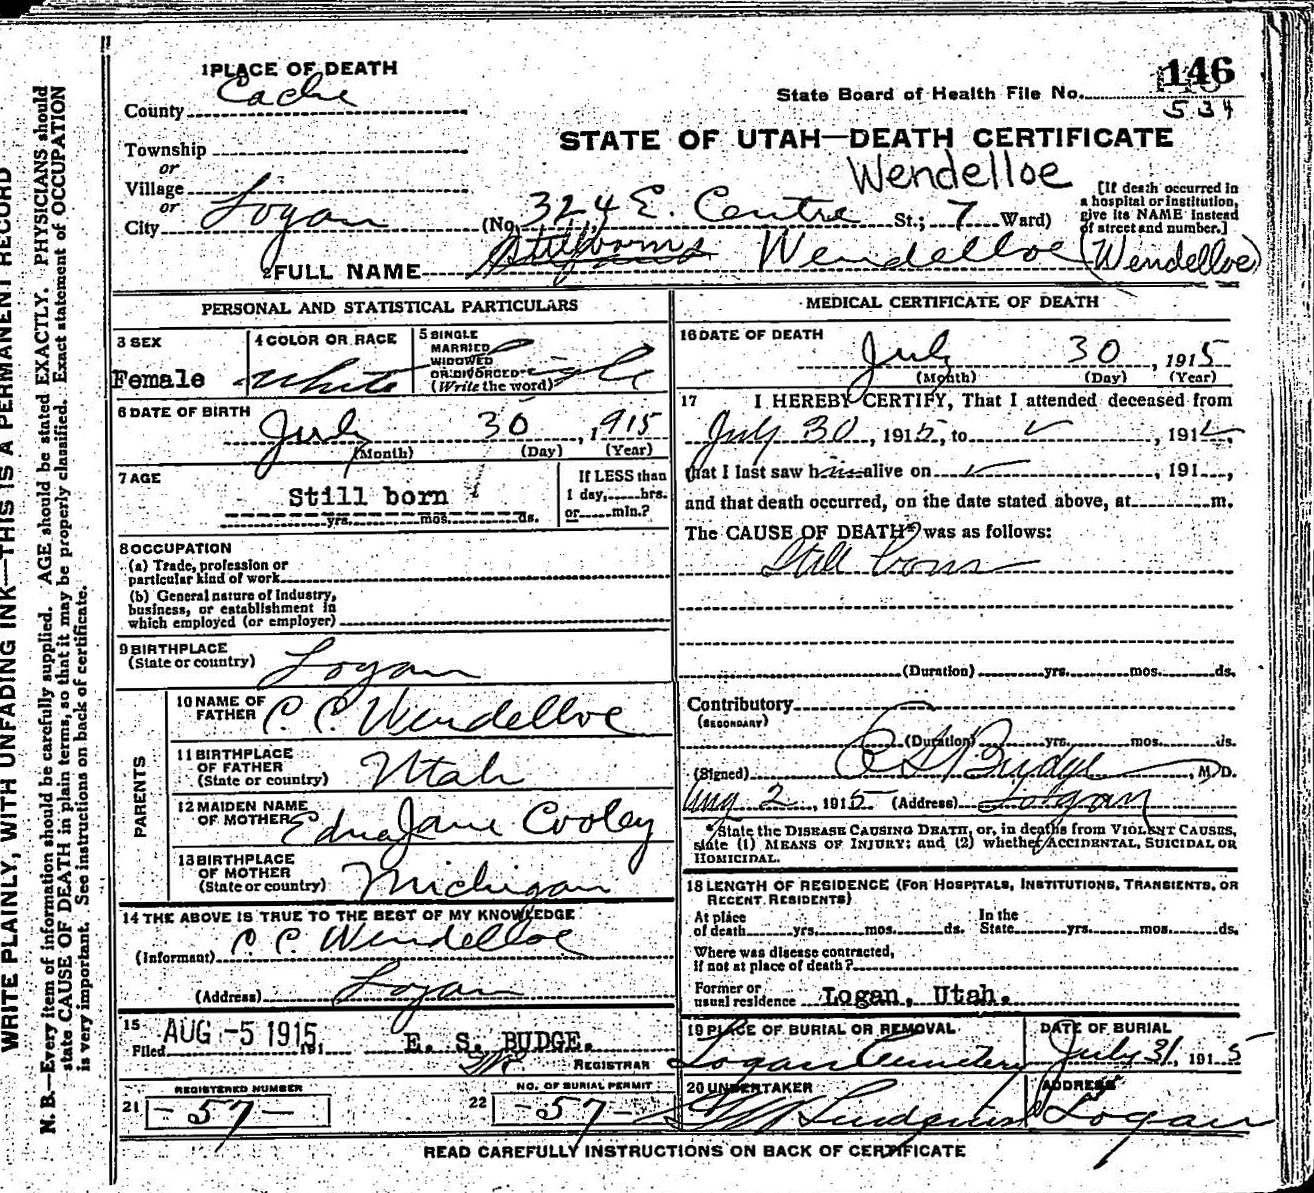 1 PLACE OF DEATH
146
County Cache
State Board of Health File No.
534
STATE OF UTAH—DEATH CERTIFICATE
Township
or
Village
or
City Logan
Wendelloe
(No. 324 E. Centre St.; 7 Ward)
[If death occurred in
a hospital or institution,
give its NAME instead
of street and number.]
2 FULL NAME Stillborn Wendelloe (Wendelloe)
PERSONAL AND STATISTICAL PARTICULARS
3 SEX
Female
4 COLOR OR RACE
White
5 SINGLE
MARRIED
WIDOWED
OR DIVORCED
(Write the word) Single
6 DATE OF BIRTH
July 30, 1915
(Month) (Day) (Year)
7 AGE
Still born
yrs. mos. ds.
If LESS than
1 day, hrs.
or min.?
8 OCCUPATION
(a) Trade, profession or
particular kind of work
(b) General nature of Industry,
business, or establishment in
which employed (or employer)
9 BIRTHPLACE
(State or country) Logan
PARENTS
10 NAME OF
FATHER C. C. Wendelloe
11 BIRTHPLACE
OF FATHER
(State or country) Utah
12 MAIDEN NAME
OF MOTHER Edna Jane Cooley
13 BIRTHPLACE
OF MOTHER
(State or country) Michigan
14 THE ABOVE IS TRUE TO THE BEST OF MY KNOWLEDGE
(Informant) C. C. Wendelloe
(Address) Logan
15
Filed AUG -5 1915, 191
E. S. BUDGE.
REGISTRAR
REGISTERED NUMBER
21 -57-
NO. OF BURIAL PERMIT
22 -57-
MEDICAL CERTIFICATE OF DEATH
16 DATE OF DEATH
July 30, 1915
(Month) (Day) (Year)
17 I HEREBY CERTIFY, That I attended deceased from
July 30, 1915, to , 191 ,
that I last saw h alive on , 191 ,
and that death occurred, on the date stated above, at m.
The CAUSE OF DEATH* was as follows:
Still born
(Duration) yrs. mos. ds.
Contributory
(SECONDARY)
(Duration) yrs. mos. ds.
(Signed) Budge, M. D.
Aug 2, 1915 (Address) Logan
*State the DISEASE CAUSING DEATH, or, in deaths from VIOLENT CAUSES,
state (1) MEANS OF INJURY; and (2) whether ACCIDENTAL, SUICIDAL OR
HOMICIDAL.
18 LENGTH OF RESIDENCE (FOR HOSPITALS, INSTITUTIONS, TRANSIENTS, OR
RECENT RESIDENTS)
At place
of death yrs. mos. ds.
In the
State yrs. mos. ds.
Where was disease contracted,
if not at place of death?
Former or
usual residence Logan, Utah.
19 PLACE OF BURIAL OR REMOVAL
Logan Cemetery
DATE OF BURIAL
July 31, 1915
20 UNDERTAKER
ADDRESS
Logan
READ CAREFULLY INSTRUCTIONS ON BACK OF CERTIFICATE
WRITE PLAINLY, WITH UNFADING INK—THIS IS A PERMANENT RECORD
N. B.—Every item of information should be carefully supplied. AGE should be stated EXACTLY. PHYSICIANS should
state CAUSE OF DEATH in plain terms, so that it may be properly classified. Exact statement of OCCUPATION
is very important. See instructions on back of certificate.